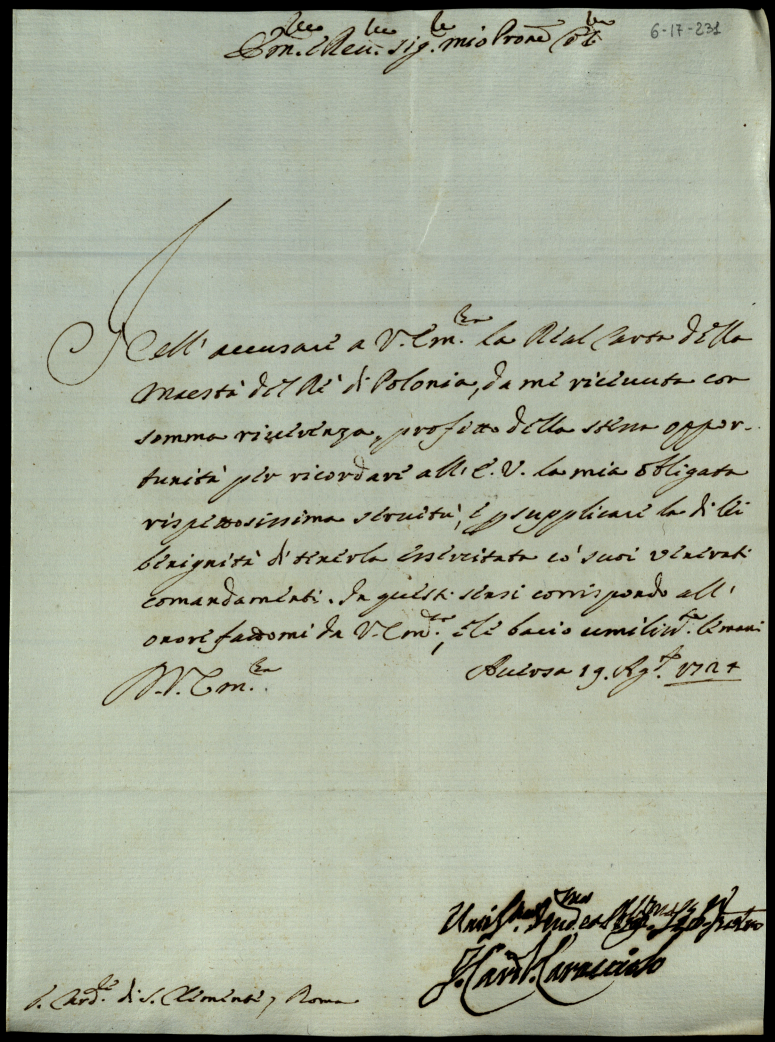 6-17-231
Em.mo e Reu.mo Sig.r mio Prone Col.mo
Nell' accusare a V. Em.za la Real Carta della
Maestà del Rè di Polonia, da me riceuuta con
somma riuerenza, profitto della stessa oppor-
tunità per ricordare all' E. V. la mia obligata
rispettosissima seruitù, e p supplicare la di lei
benignità di tenerla essercitata co' suoi venerati
comandamenti. In questi sensi corrispondo all'
onore fattomi da V. Em.za, e le bacio umilm.te le mani
D. V. Em.za
Auersa 19. Ag.to 1724
Card. Caracciolo
S. Card.le di S. Clemente, Roma